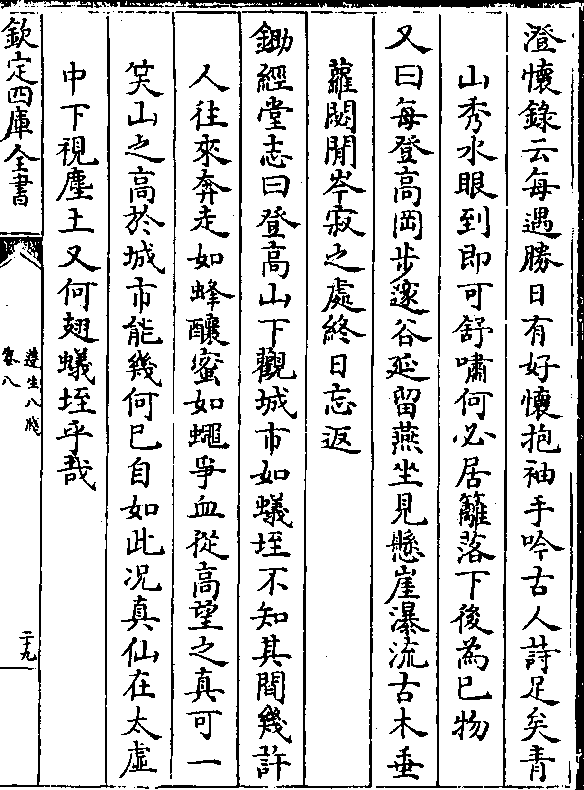 澄懷錄云每遇勝日有好懷抱袖手吟古人詩足矣青
山秀水眼到即可舒嘯何必居籬落下後為已物
又曰每登高岡步邃谷延留燕坐見懸崖瀑流古木垂
蘿閟閒岑寂之處終日忘返
鋤經堂志曰登高山下觀城市如蟻垤不知其間幾許
人往來奔走如蜂釀蜜如蠅爭血從高望之真可一
笑山之高於城市能幾何已自如此况真仙在太虛
中下視塵土又何翅蟻垤乎哉
欽定四庫全書
遵生八牋
卷八
二十九